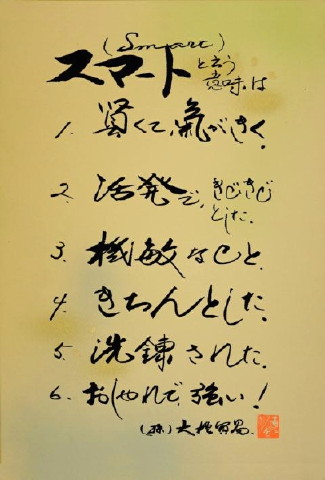 (Smart)
スマートと云う
意味は
1. 賢くて、氣がきく、
2. 活発で、きびきび
とした、
3. 機敏なこと、
4. きちんとした、
5. 洗錬された、
6. おしゃれで、強い!
(株)大